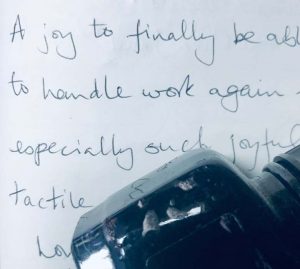 A joy to finally be abl
to handle work again -
especially such joyful
tactile